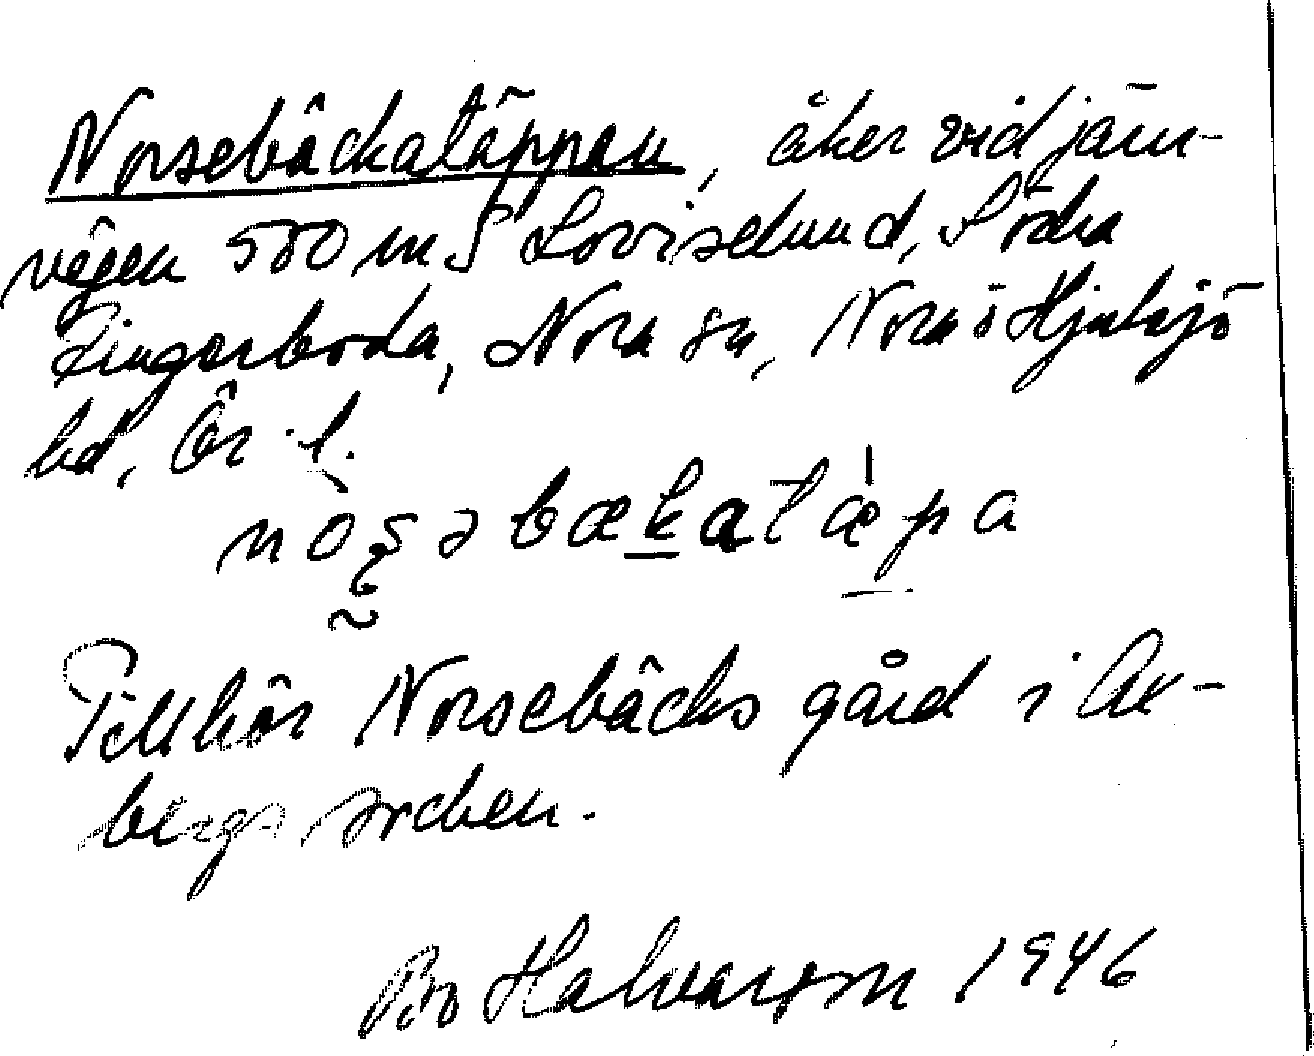 Norsebäckatäppan, åker vid järn-
vägen 500 m S Loviselund, Södra
Fingerboda, Nora sn, Nora o Hjulsjö
bd, Ör. l.
Tillhör Norsebäcks gård i Vi-
bergs socken.
Bo Halvarson 1946